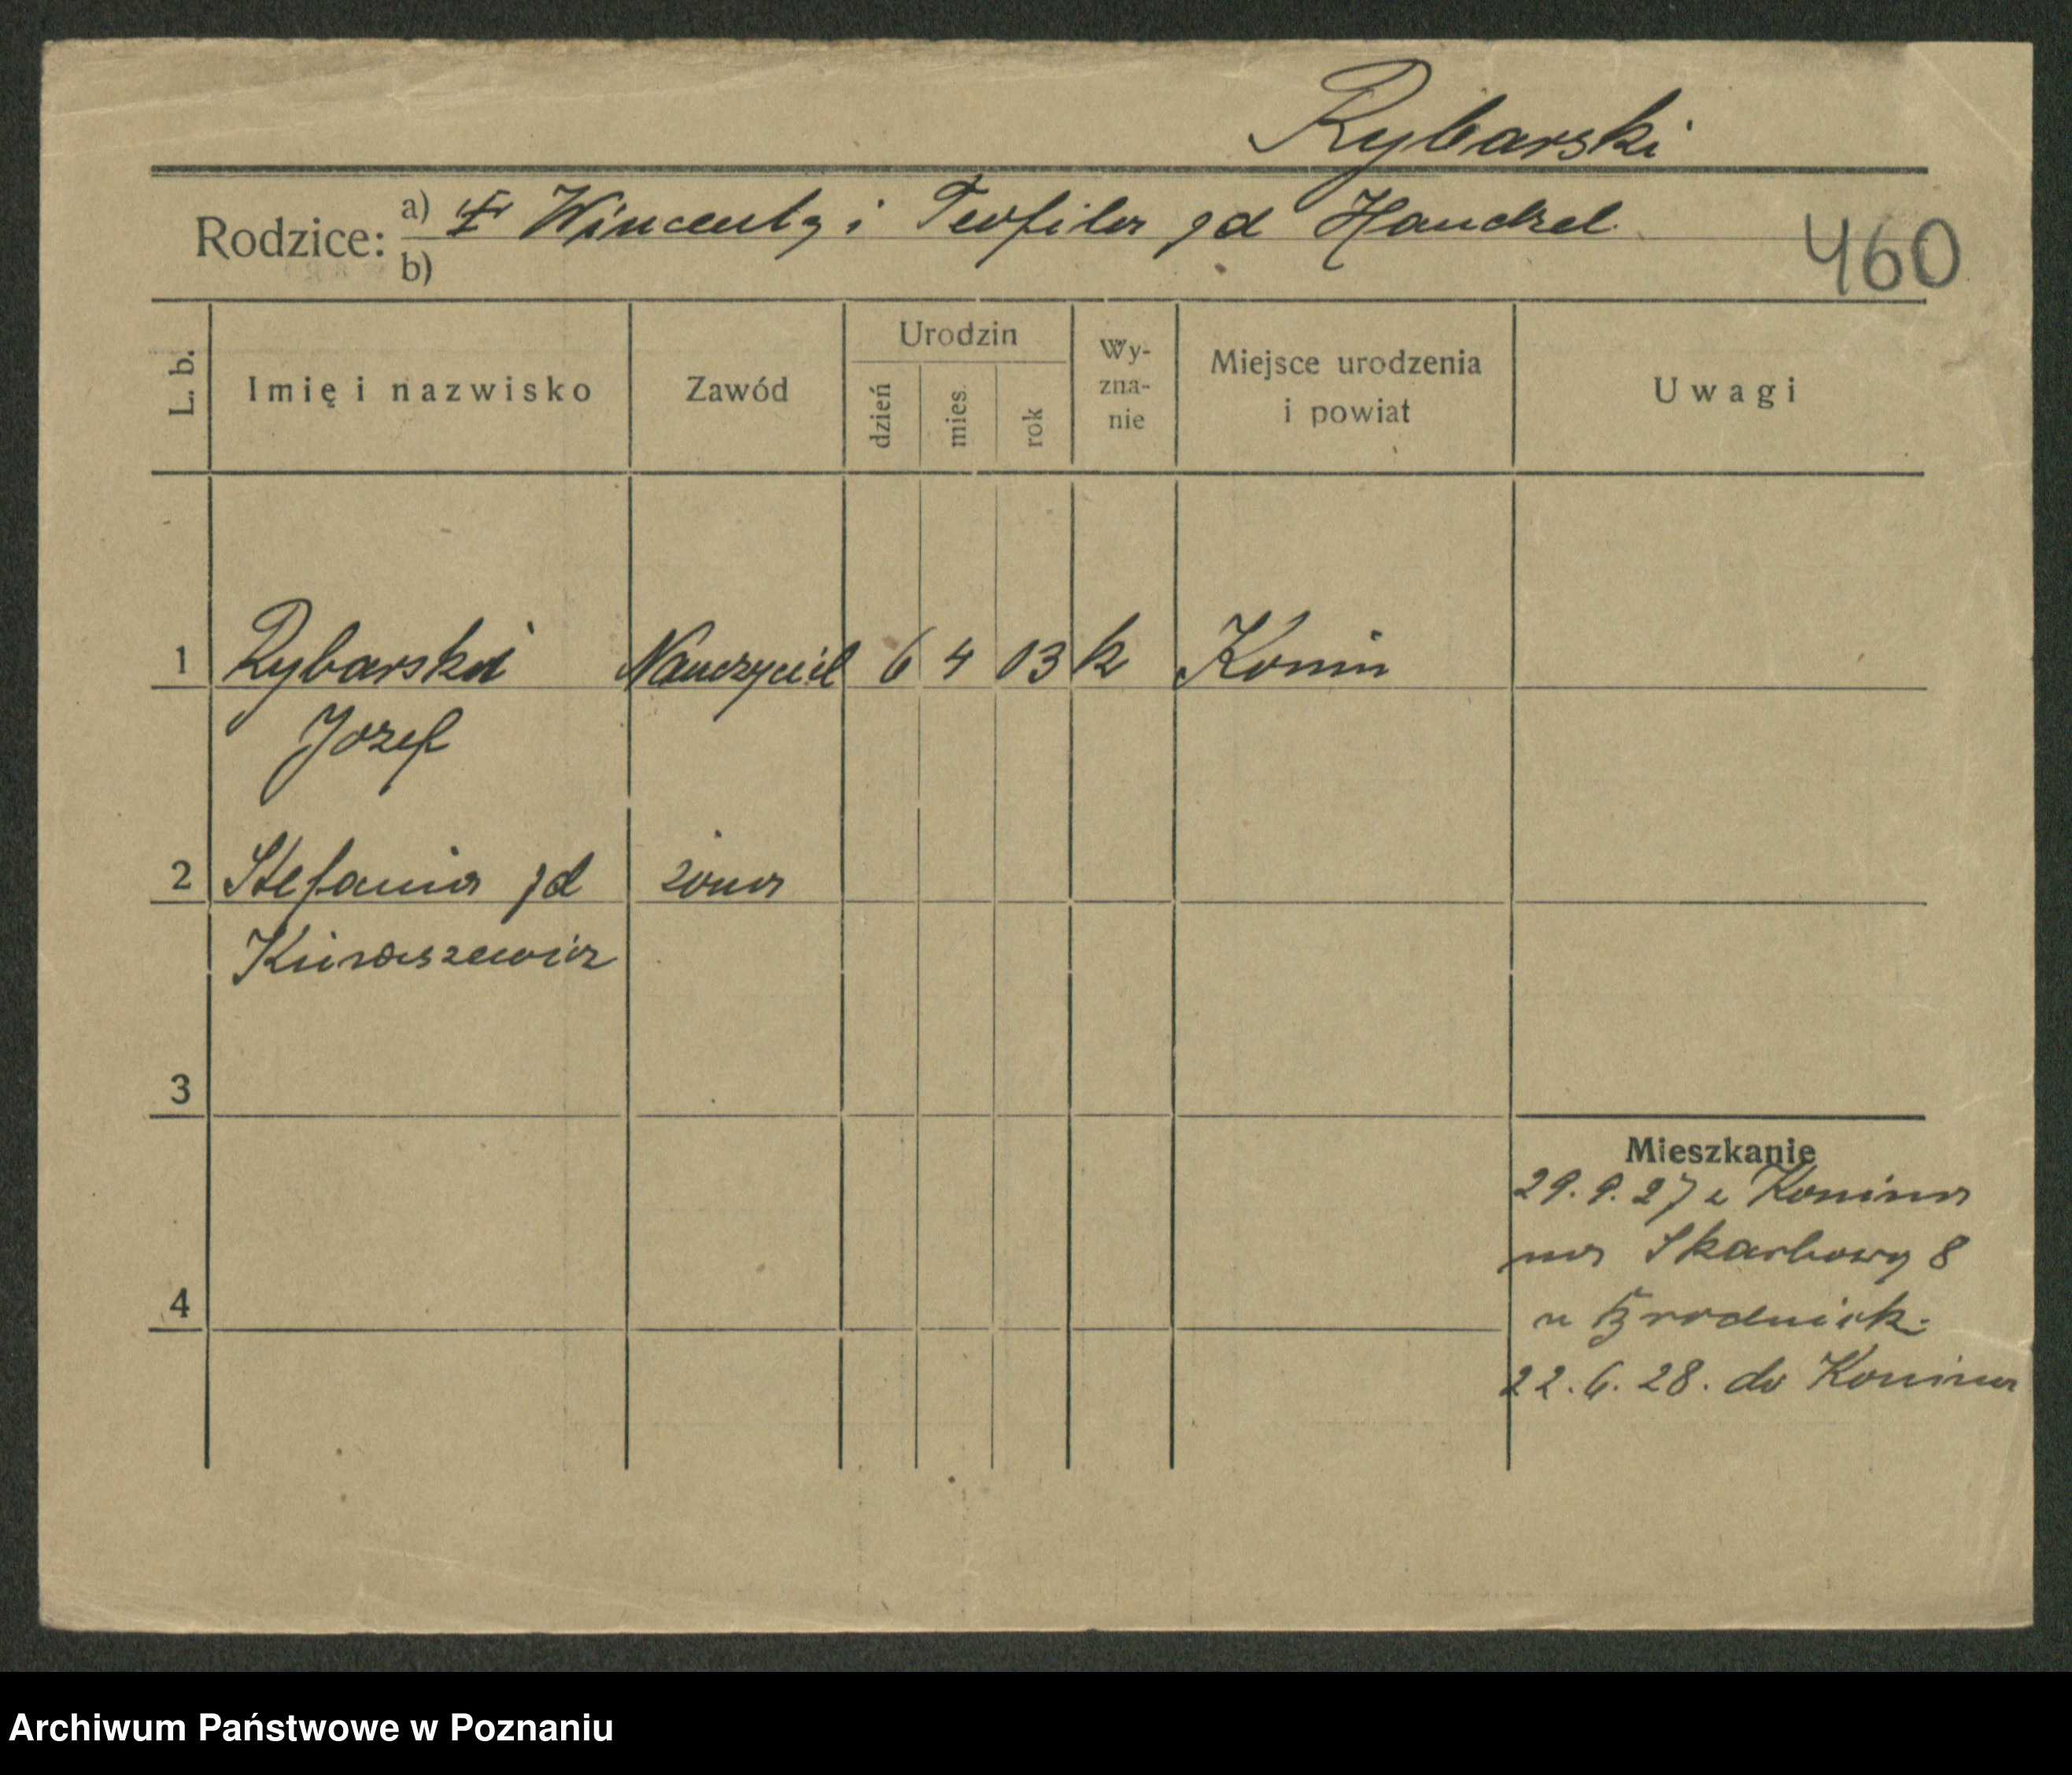 Rybarski
Rodzice: a) Wincenty i Teofila z d Handzel
b)
460
L. b.
Imię i nazwisko
Zawód
Urodzin
dzień
mies.
rok
Wy-
zna-
nie
Miejsce urodzenia
i powiat
Uwagi
1 Rybarski Nauczyciel 6 4 03 k Konin
Jozef
2 Stefania z d żona
3
4
Mieszkanie
29. 9. 27 z Konina
na Skarbowy 8
u Brodnick.
22. 6. 28. do Konina
Archiwum Państwowe w Poznaniu